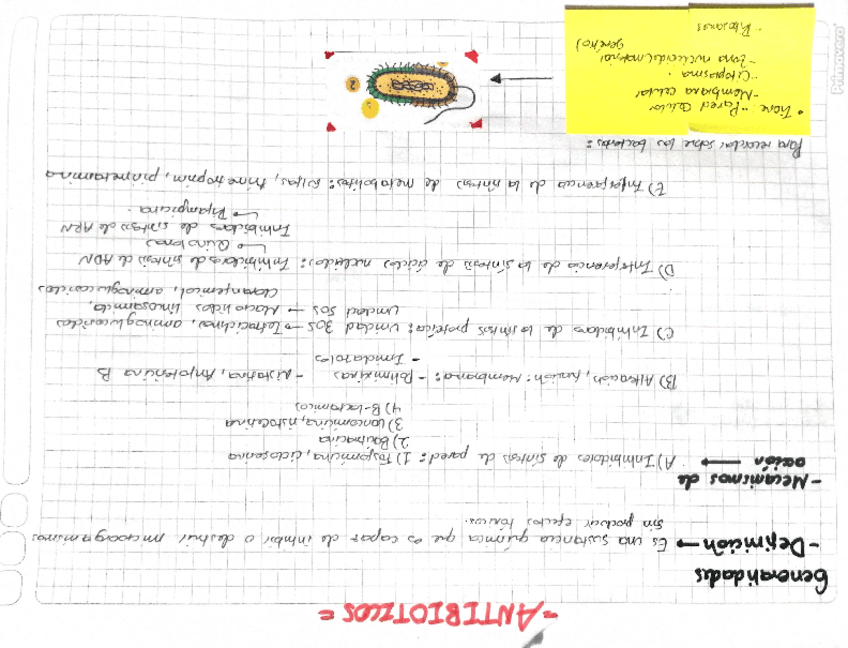 = ANTIBIOTICOS =
Generalidades
- Definición → Es una sustancia química que es capaz de inhibir o destruir microorganismos
sin producir efectos tóxicos.
- Mecanismos de
acción → A) Inhibidores de síntesis de pared: 1) Fosfomicina, cicloserina
2) Bacitracina
3) Vancomicina, ristocetina
4) B-lactamicos
B) Alteración, función: Membrana: - Polimixinas - Nistatina, Anfotericina B
- Imidazoles
C) Inhibidores de la síntesis proteíca: Unidad 30S → Tetraciclinas, aminoglucosidos
Unidad 50S → Macrolidos, lincosamida,
Cloranfenicol, aminoglucosidos
D) Interferencia de la síntesis de ácidos nucleidos: Inhibidores de síntesis de ADN
↳ Quinolonas
Inhibidores de síntesis de ARN
↳ Rifampicina.
E) Interferencia de la síntesis de metabolitos: Sulfas, trimetoprim, pirimetamina
Para recordar sobre las bacterias:
• Tiene - Pared celular
- Membrana celular
- Citoplasma
- Zona nucleoide (material
genético)
- Ribosomas
2
Primavera